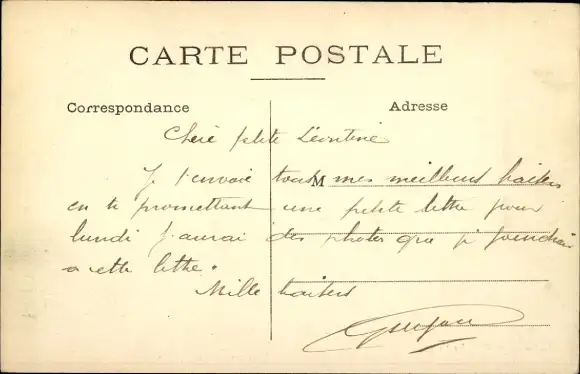 CARTE POSTALE
Correspondance
Adresse
Chère petite Léontine
Je t'envoie tous M mes meilleurs baisers
en te promettant une petite lettre pour
lundi j'aurai des photos que je joindrai
a cette lettre.
Mille baisers